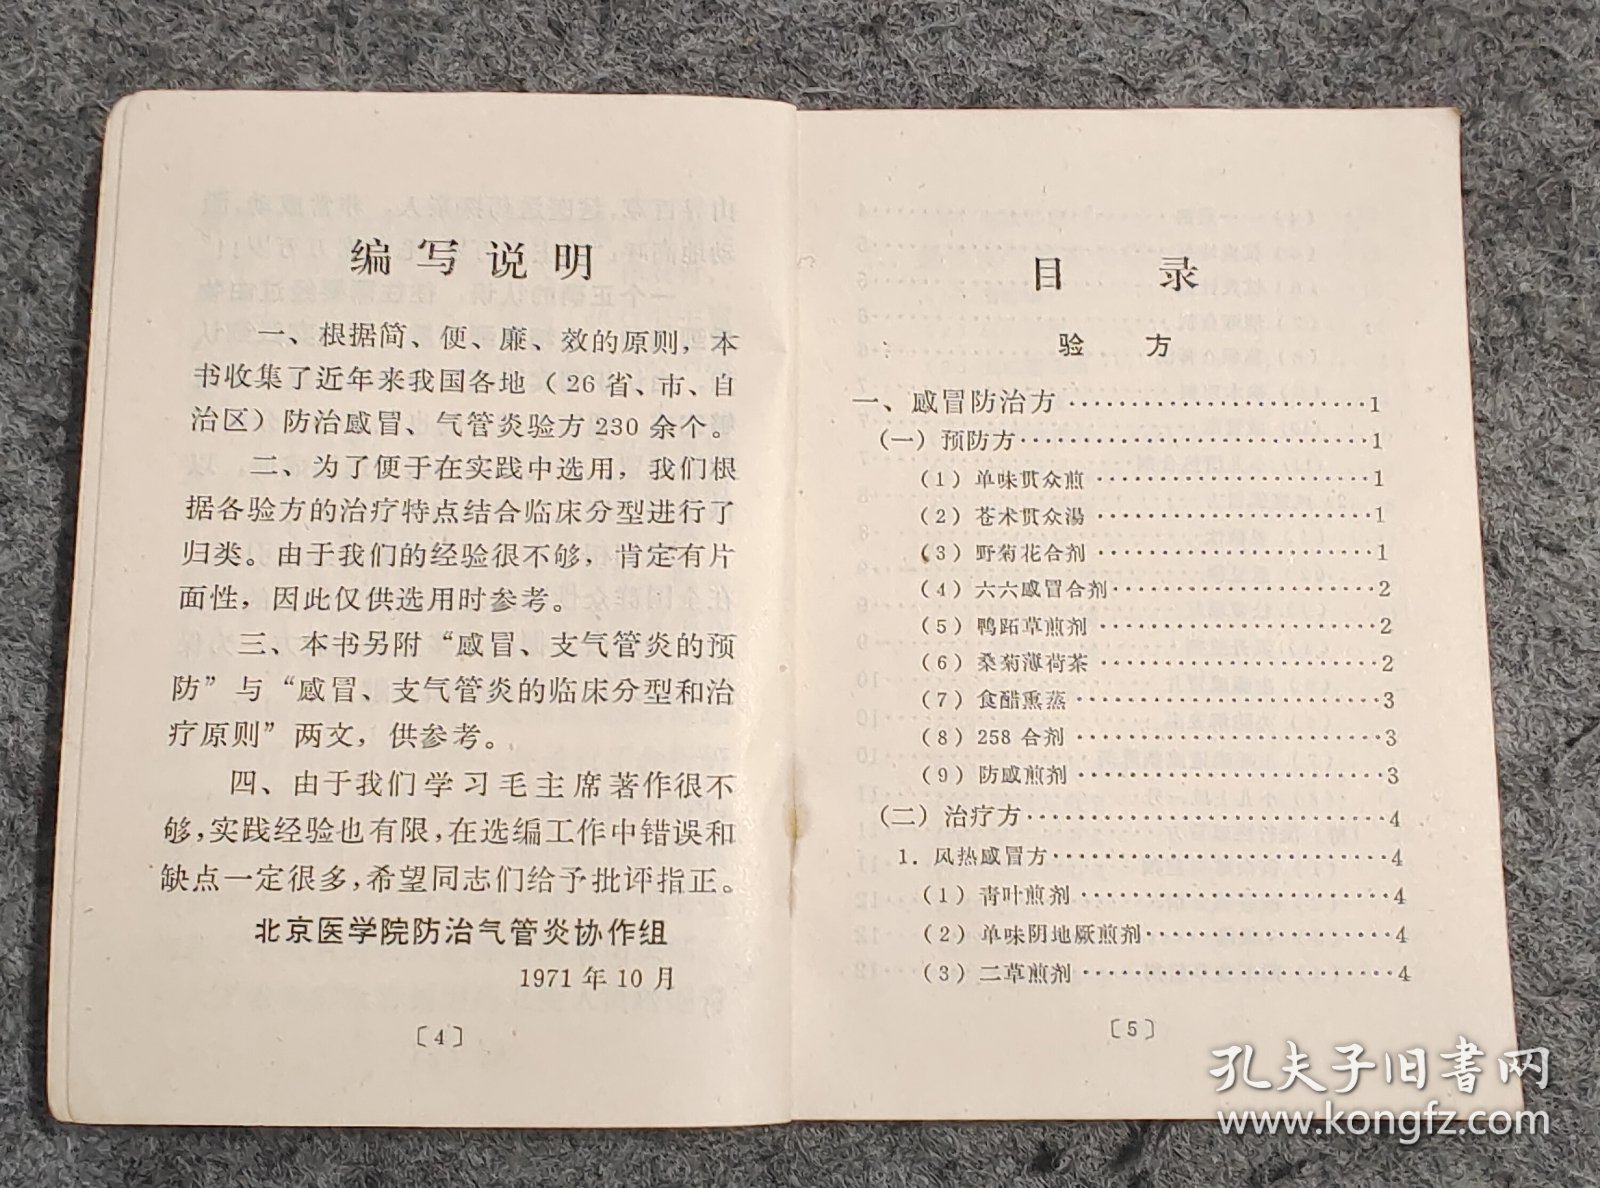 编写说明
一、根据简、便、廉、效的原则，本
书收集了近年来我国各地（26省、市、自
治区）防治感冒、气管炎验方230余个。
二、为了便于在实践中选用，我们根
据各验方的治疗特点结合临床分型进行了
归类。由于我们的经验很不够，肯定有片
面性，因此仅供选用时参考。
三、本书另附“感冒、支气管炎的预
防”与“感冒、支气管炎的临床分型和治
疗原则”两文，供参考。
四、由于我们学习毛主席著作很不
够，实践经验也有限，在选编工作中错误和
缺点一定很多，希望同志们给予批评指正。
北京医学院防治气管炎协作组
1971年10月
〔4〕
目 录
验 方
一、感冒防治方……………………1
（一）预防方……………………1
（1）单味贯众煎……………………1
（2）苍术贯众湯……………………1
（3）野菊花合剂……………………1
（4）六六感冒合剂……………………2
（5）鸭跖草煎剂……………………2
（6）桑菊薄荷茶……………………2
（7）食醋熏蒸……………………3
（8）258合剂……………………3
（9）防感煎剂……………………3
（二）治疗方……………………4
1. 风热感冒方……………………4
（1）青叶煎剂……………………4
（2）单味阴地厥煎剂……………………4
（3）二草煎剂……………………4
〔5〕
孔夫子旧书网
www.kongfz.com